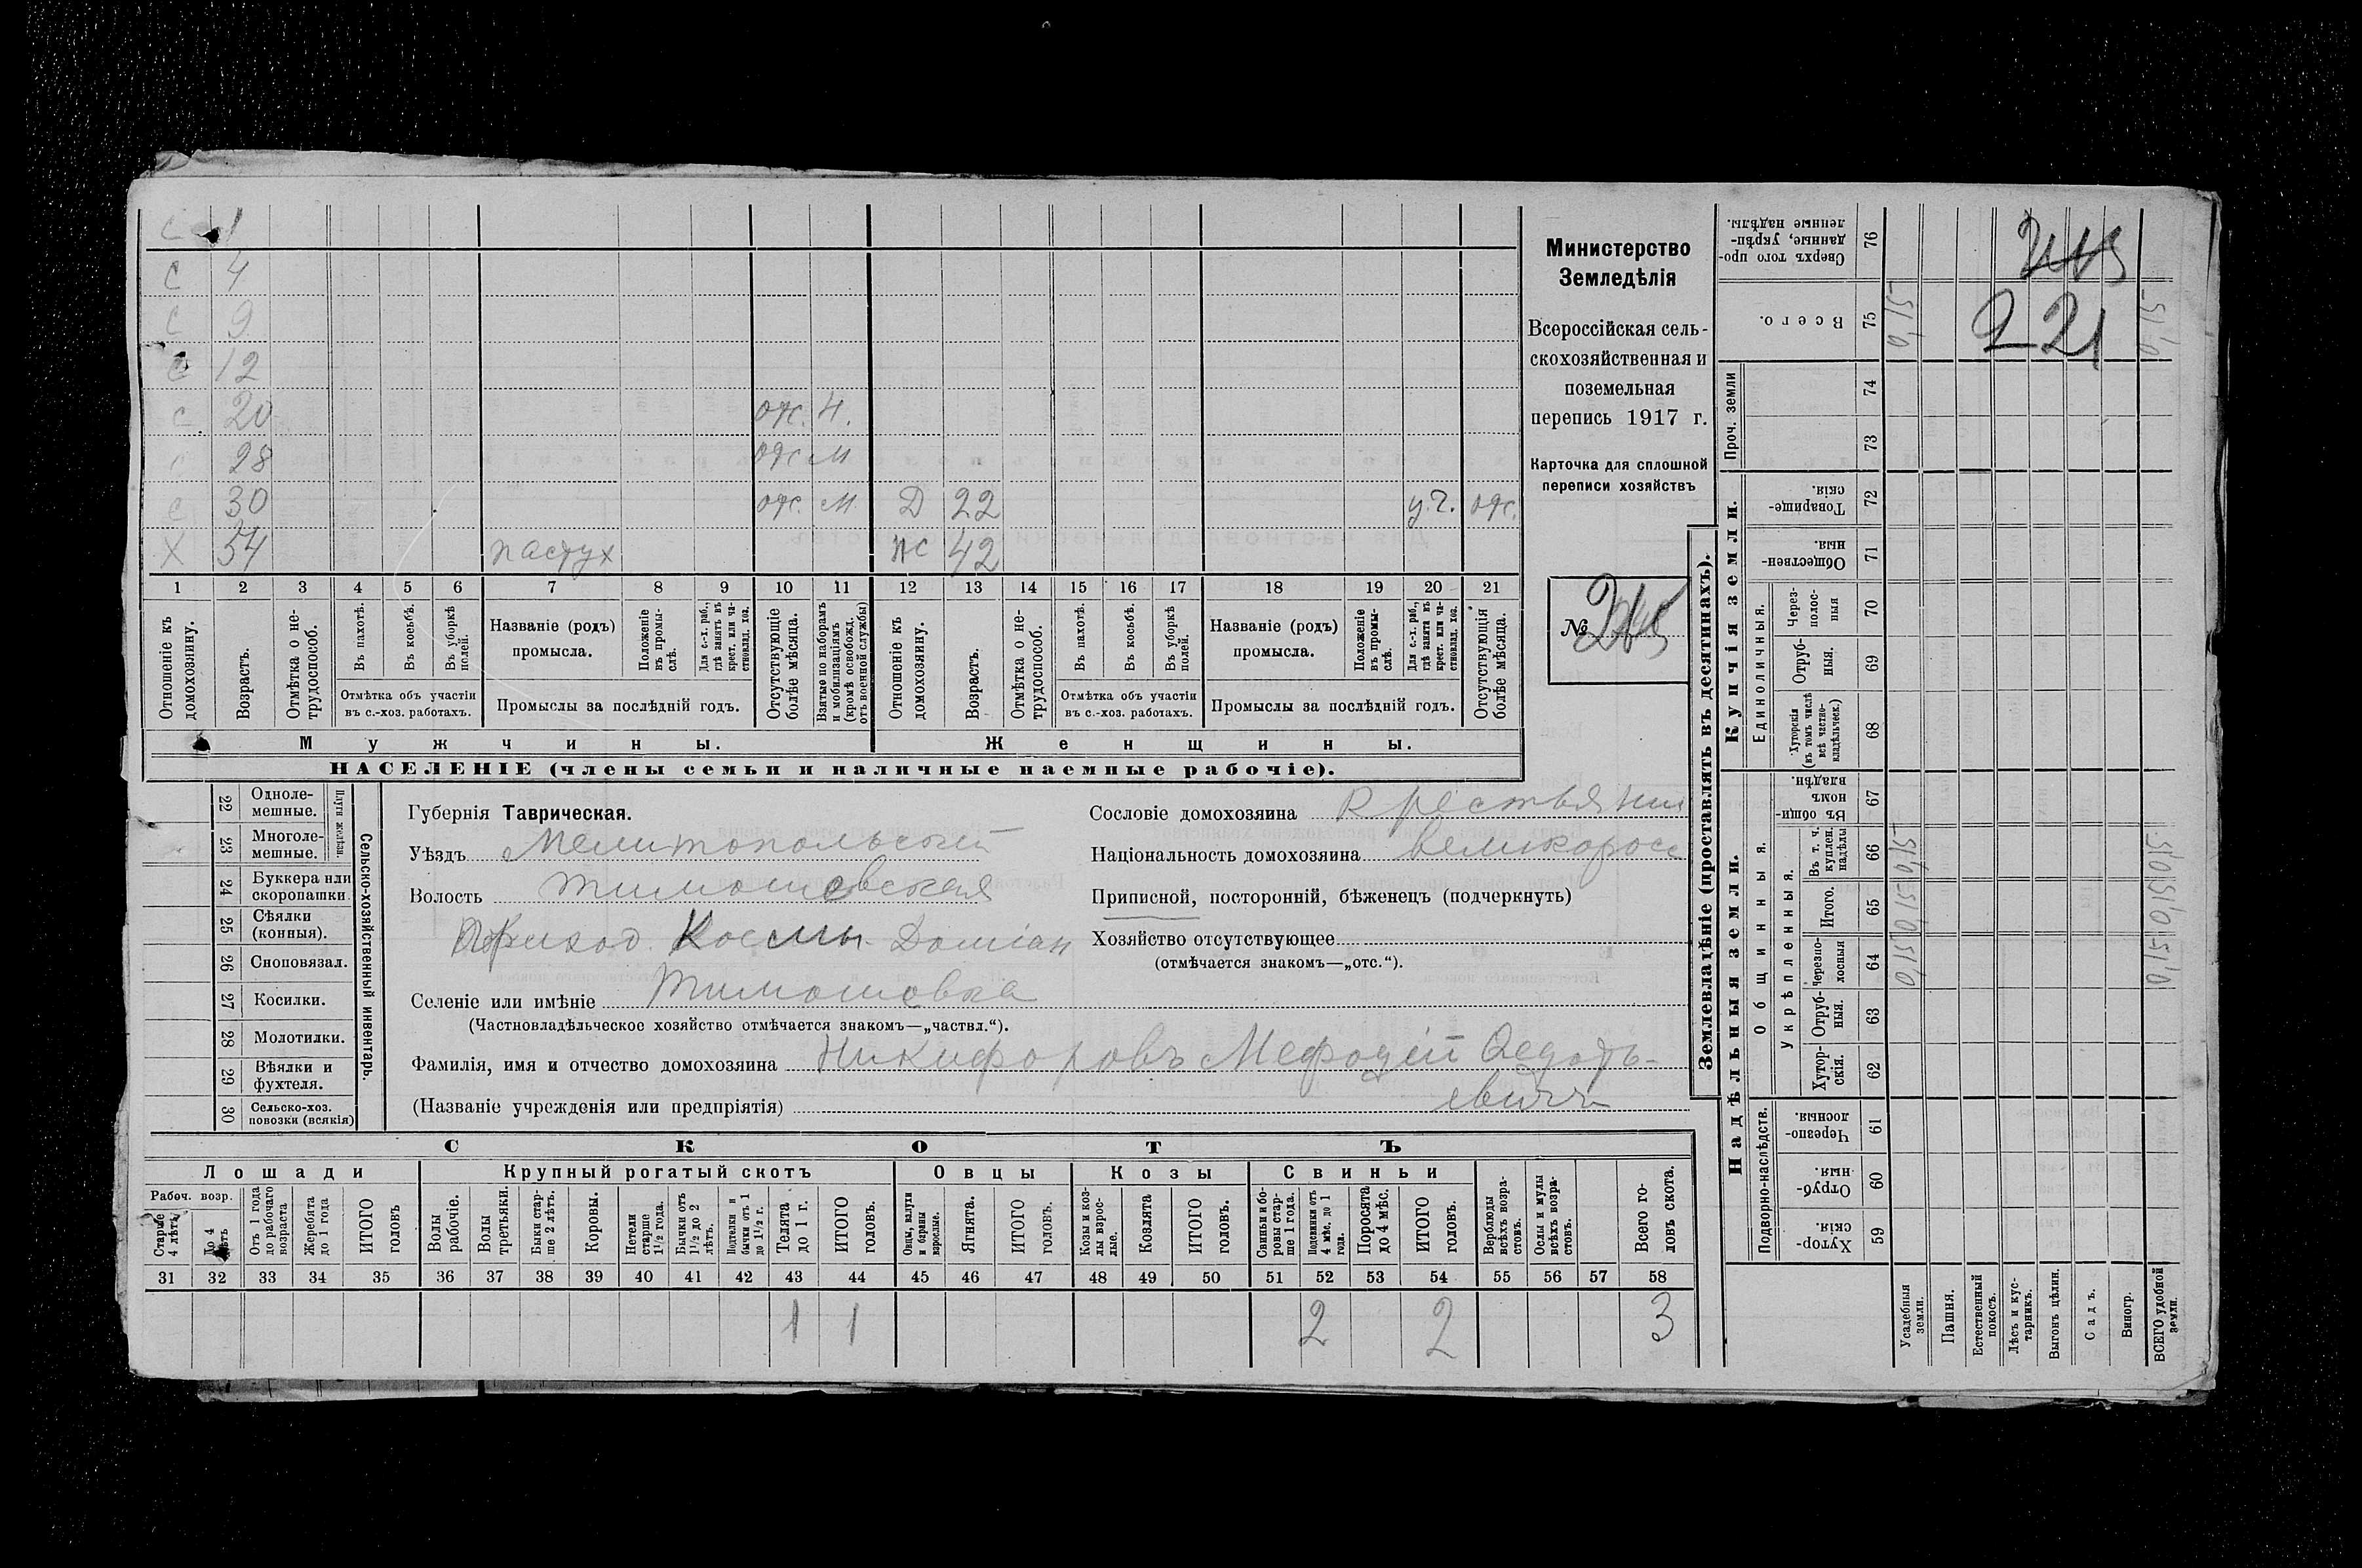 С 1
С 4
С 9
С 12
С 20 отс. Н.
С 28 отс М
С 30 отс. М. Д 22 у.г. отс.
Х 54 пастух пс 42
1 2 3 4 5 6 7 8 9 10 11 12 13 14 15 16 17 18 19 20 21
Отношеніе къ домохозяину.
Возрастъ.
Отмѣтка о нетрудоспособ.
Въ пахотѣ.
Въ косьбѣ.
Въ уборкѣ полей.
Отмѣтка объ участіи
въ с.-хоз. работахъ.
Названіе (родъ)
промысла.
Положеніе въ промыслѣ.
Для с.-х. раб., гдѣ занятъ въ крест. или частновлад. хоз.
Промыслы за послѣдній годъ.
Отсутствующіе болѣе мѣсяца.
Взятые по наборамъ и мобилизаціямъ (кромѣ освобожд. отъ военной службы)
Отношеніе къ домохозяину.
Возрастъ.
Отмѣтка о нетрудоспособ.
Въ пахотѣ.
Въ косьбѣ.
Въ уборкѣ полей.
Отмѣтка объ участіи
въ с.-хоз. работахъ.
Названіе (родъ)
промысла.
Положеніе въ промыслѣ.
Для с.-х. раб., гдѣ занята въ крест. или частновлад. хоз.
Промыслы за послѣдній годъ.
Отсутствующія болѣе мѣсяца.
Мужчины. Женщины.
НАСЕЛЕНІЕ (члены семьи и наличные наемные рабочіе).
Министерство
Земледѣлія
Всероссійская сель-
скохозяйственная и
поземельная
перепись 1917 г.
Карточка для сплошной
переписи хозяйствъ
№
22 Одноле-
мешные.
23 Многоле-
мешные.
Плуги желѣзн.
24 Буккера или
скоропашки.
25 Сѣялки
(конныя).
26 Сноповязал.
27 Косилки.
28 Молотилки.
29 Вѣялки и
фухтеля.
30 Сельско-хоз.
повозки (всякія)
Сельско-хозяйственный инвентарь.
Губернія Таврическая.
Уѣздъ Мелитопольскій
Волость Тимошовская
Приход Космы Доміан
Селеніе или имѣніе Тимошовка
(Частновладѣльческое хозяйство отмѣчается знакомъ—„частвл.“).
Фамилія, имя и отчество домохозяина Никифоровъ Мефодій Ѳедоть-
(Названіе учрежденія или предпріятія) евичъ
Сословіе домохозяина Крестьянин
Національность домохозяина великоросс
Приписной, посторонній, бѣженецъ (подчеркнуть)
Хозяйство отсутствующее
(отмѣчается знакомъ—„отс.“).
СКОТЪ
Лошади Крупный рогатый скотъ Овцы Козы Свиньи
Рабоч. возр.
Старше 4 лѣтъ
До 4 лѣтъ
Отъ 1 года до рабочаго возраста
Жеребята до 1 года
ИТОГО головъ
Волы рабочіе.
Волы третьяки.
Быки старше 2 лѣтъ.
Коровы.
Нетели старше 1½ года.
Бычки отъ 1½ до 2 лѣтъ.
Подтелки и бычки отъ 1 до 1½ г.
Телята до 1 г.
ИТОГО головъ.
Овцы, валухи и бараны взрослые.
Ягнята.
ИТОГО головъ.
Козы и козлы взрослые.
Козлята
ИТОГО головъ.
Свиньи и боровы старше 1 года.
Подсвинки отъ 4 мѣс. до 1 года.
Поросята до 4 мѣс.
ИТОГО головъ.
Верблюды всѣхъ возрастовъ.
Ослы и мулы всѣхъ возрастовъ.
Всего головъ скота.
31 32 33 34 35 36 37 38 39 40 41 42 43 44 45 46 47 48 49 50 51 52 53 54 55 56 57 58
1 1 2 2 3
Землевладѣніе (проставлять въ десятинахъ).
221
Сверхъ того проданные, укрѣпленные надѣлы. 76
Всего. 75 0,15 0,15
Проч. земли 74
73
Купчія земли.
Товарищескія. 72
Общественныя. 71
Единоличныя.
Черезполосныя 70
Отрубныя. 69
Хуторскія (въ томъ числѣ всѣ частновладѣльческ.) 68
Надѣльныя земли.
Общинныя.
Въ общинномъ владѣн. 67
Укрѣпленныя.
Въ т. ч. куплен. надѣлы 66
Итого. 65
Черезполосныя 64
Отрубныя. 63
Хуторскія. 62
Подворно-наслѣдств.
Черезполосныя. 61
Отрубныя. 60
Хуторскія. 59
Усадебныя земли.
Пашня.
Естественный покосъ.
Лѣсъ и кустарникъ.
Выгонъ цѣлин.
Садъ.
Виногр.
ВСЕГО удобной земли.